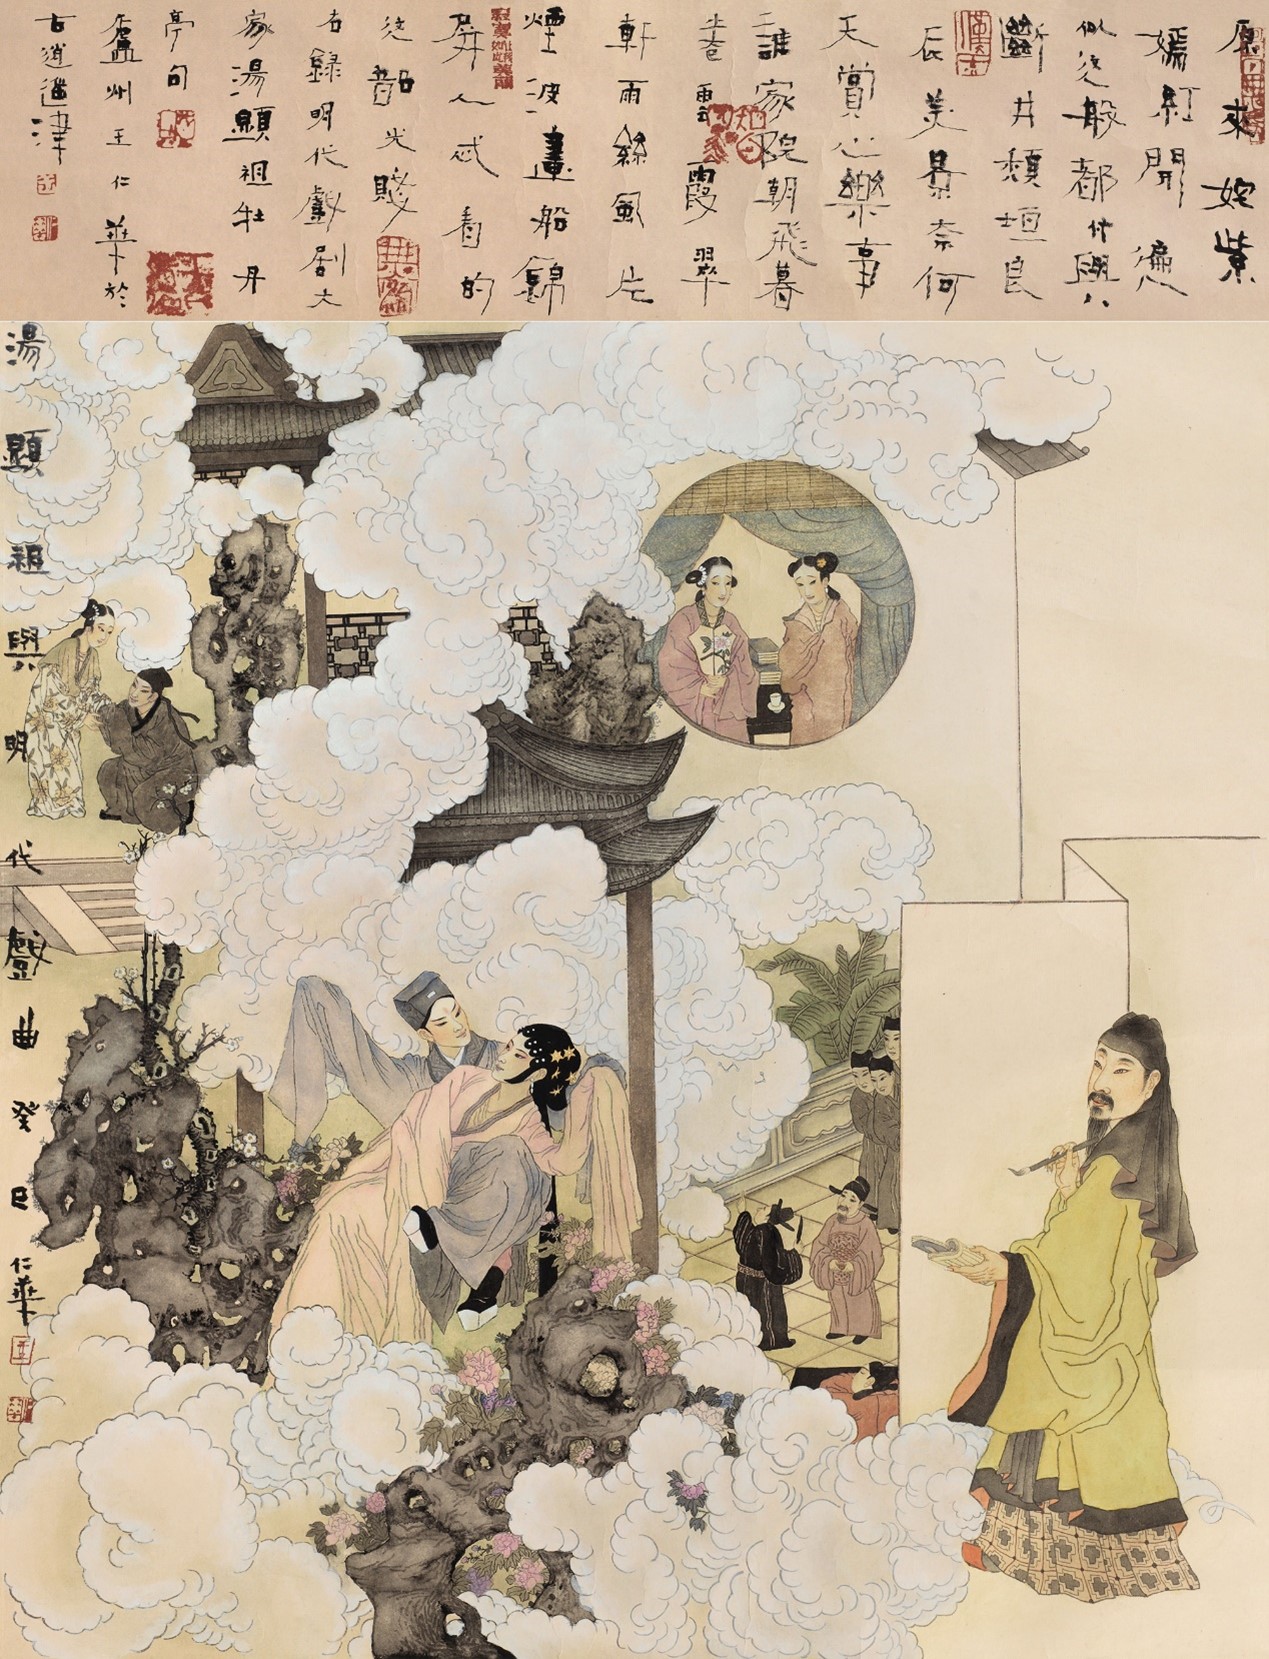 原來姹紫
嫣紅開遍
似這般都付與
斷井頹垣良
辰美景奈何
天賞心樂事
誰家院朝飛暮
卷雲霞翠
軒雨絲風片
煙波畫船錦
屏人忒看的
這韶光賤
右錄明代戲劇大
家湯顯祖牡丹
亭句
廬州王仁華於
古逍遙津
湯顯祖與明代戲曲癸巳仁華